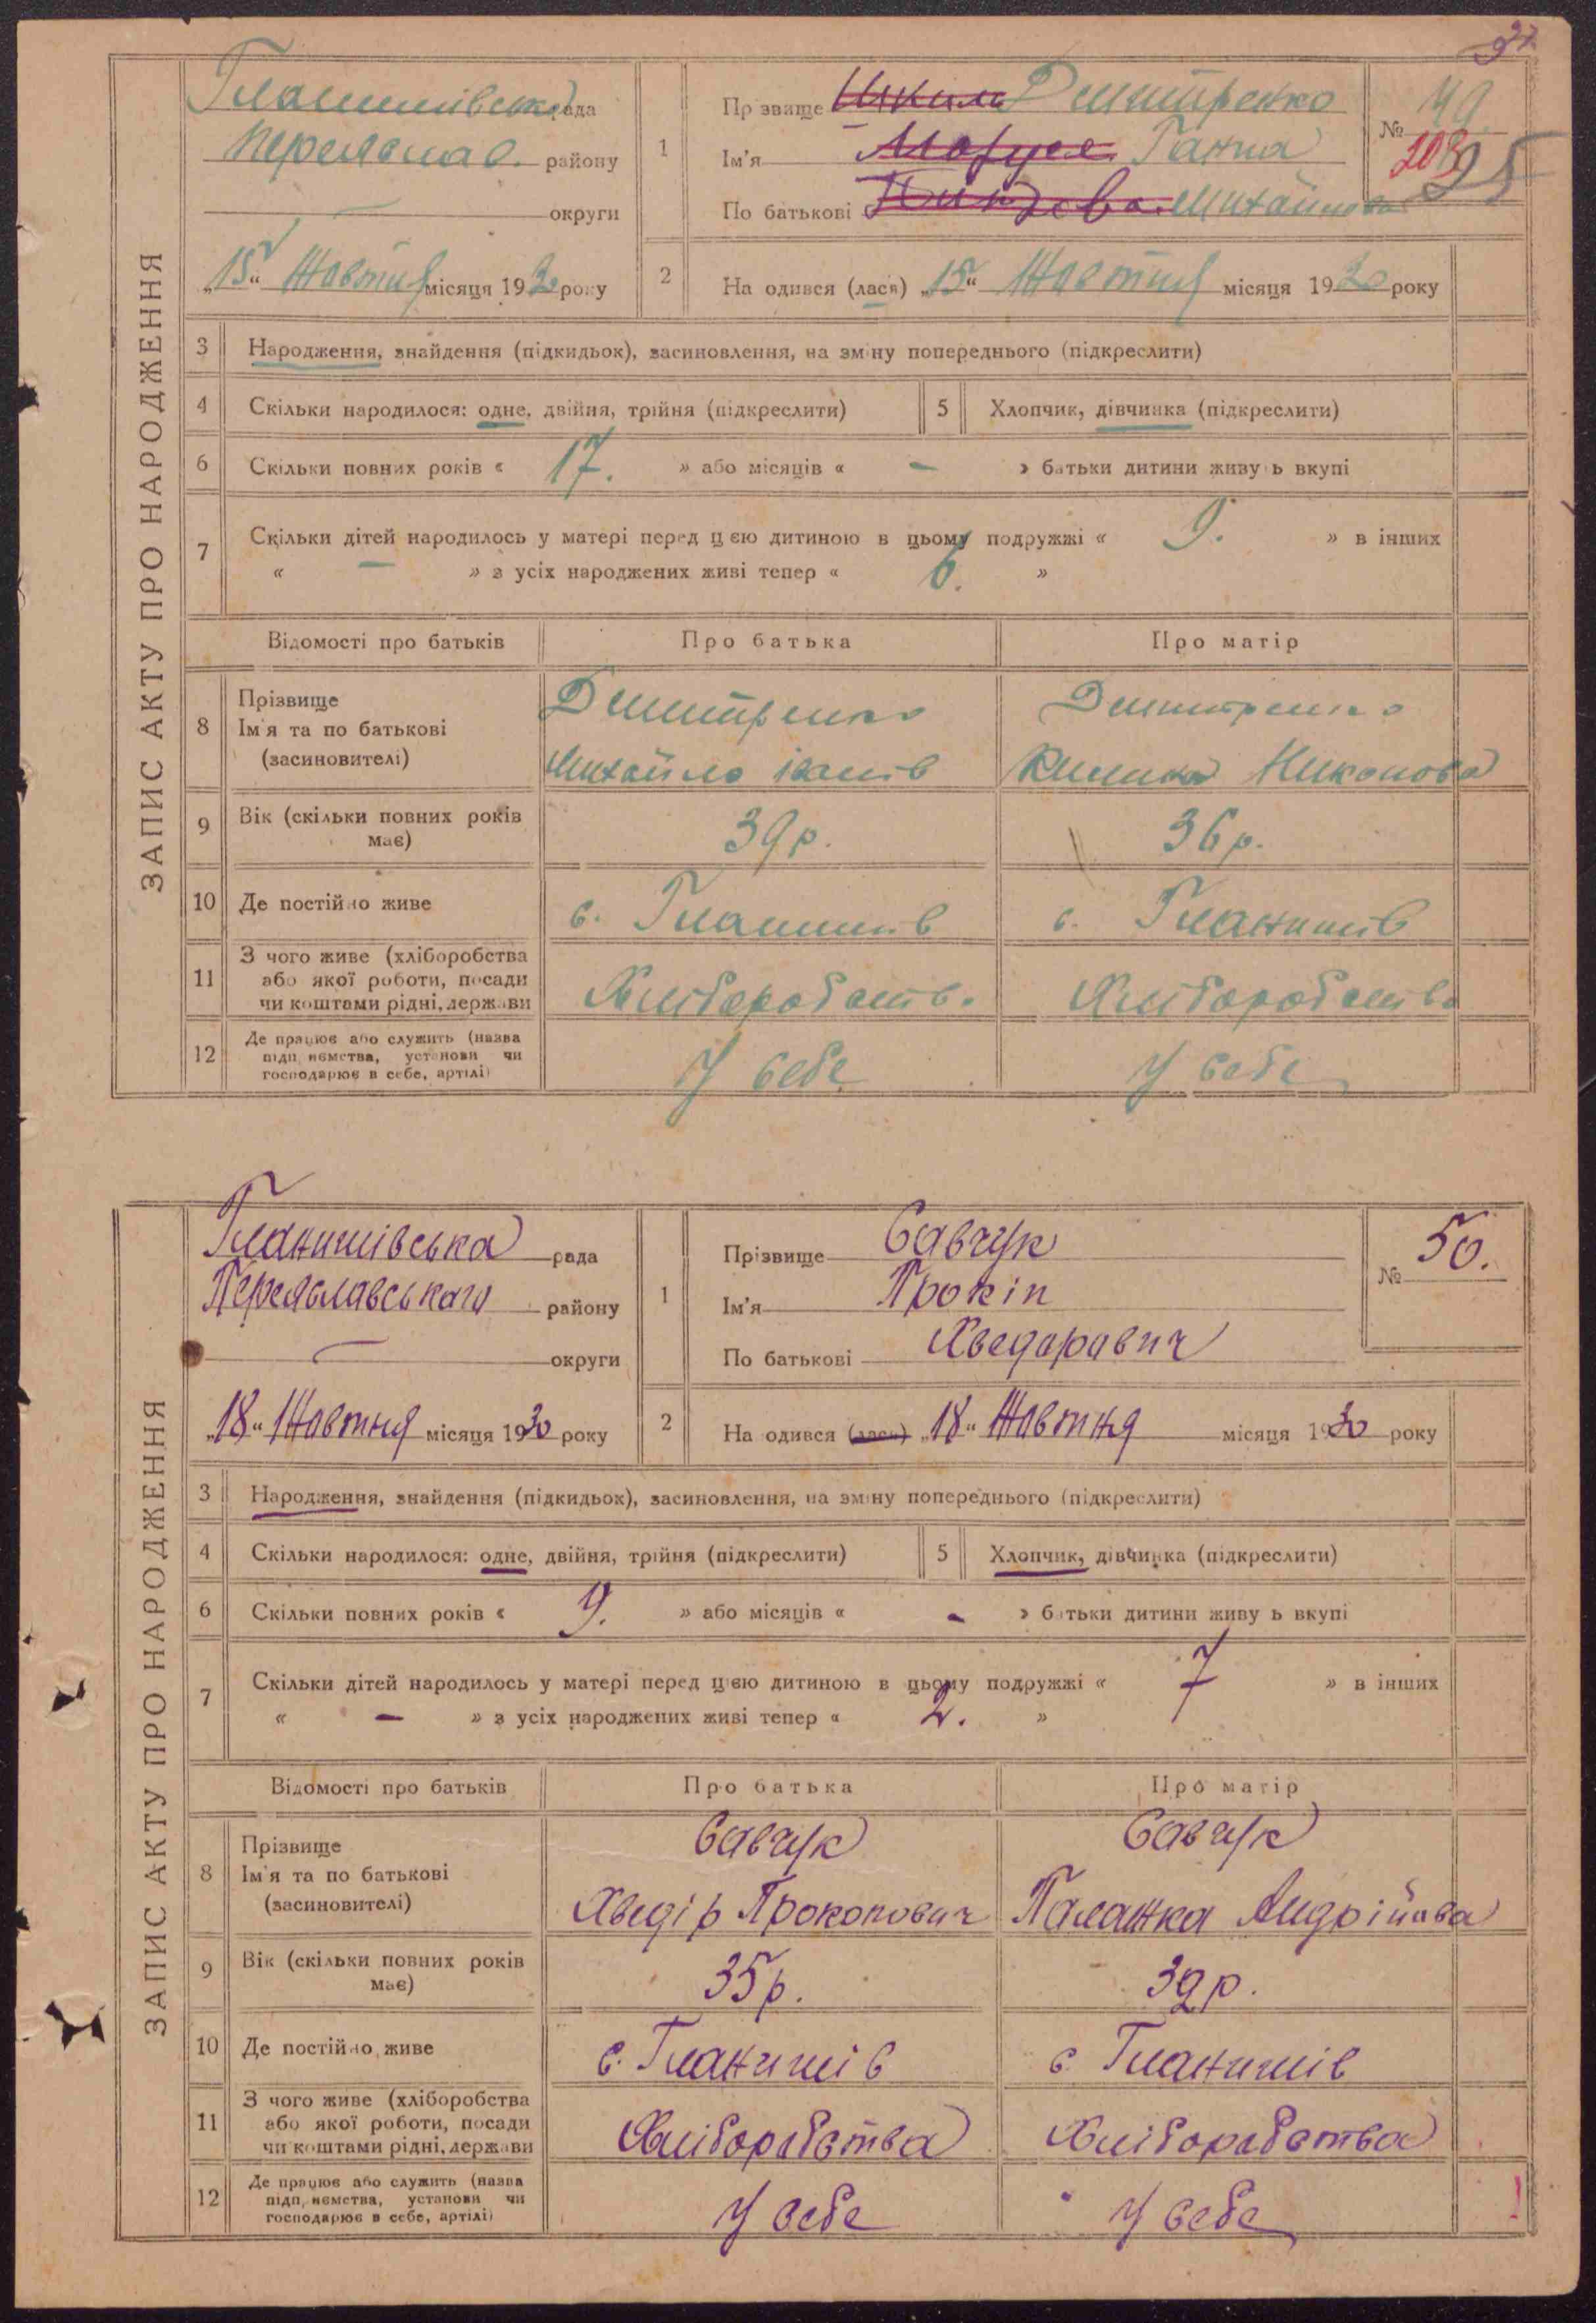 ЗАПИС АКТУ ПРО НАРОДЖЕННЯ
рада
Переяслав. району
округи
„15“ Жовтня місяця 1930 року
1
Прізвище Дмитренко
Ім'я Маруся Ганна
По батькові Михайлова
№ 49.
2
Народився (лася) „15“ Жовтня місяця 1930 року
3 Народження, знайдення (підкидьок), засиновлення, на зміну попереднього (підкреслити)
4 Скільки народилося: одне, двійня, трійня (підкреслити) 5 Хлопчик, дівчинка (підкреслити)
6 Скільки повних років « 17. » або місяців « - » батьки дитини живуть вкупі
7 Скільки дітей народилось у матері перед цією дитиною в цьому подружжі « 9. » в інших
« — » з усіх народжених живі тепер « 6. »
Відомості про батьків Про батька Про матір
8 Прізвище Дмитренко Дмитренко
Ім'я та по батькові
(засиновителі) Михайло Никонова
9 Вік (скільки повних років має) 39 р. 36 р.
10 Де постійно живе с. Гланишів с. Гланишів
11 З чого живе (хліборобства
або якої роботи, посади
чи коштами рідні, держави Хліборобств. Хліборобств.
12 Де працює або служить (назва
підприємства, установи чи
господарює в себе, артілі) У себе У себе
ЗАПИС АКТУ ПРО НАРОДЖЕННЯ
Гланишівська рада
Переяславського району
округи
„18“ Жовтня місяця 1930 року
1
Прізвище Савчук
Ім'я Прокіп
По батькові Хведорович
№ 50.
2
Народився (лась) „18“ Жовтня місяця 1930 року
3 Народження, знайдення (підкидьох), засиновлення, на зміну попереднього (підкреслити)
4 Скільки народилося: одне, двійня, трійня (підкреслити) 5 Хлопчик, дівчинка (підкреслити)
6 Скільки повних років « 9. » або місяців « - » батьки дитини живуть вкупі
7 Скільки дітей народилось у матері перед цією дитиною в цьому подружжі « 7 » в інших
« — » з усіх народжених живі тепер « 2. »
Відомості про батьків Про батька Про матір
8 Прізвище Савчук Савчук
Ім'я та по батькові
(засиновителі) Хведір Прокопович Палажка Андрійова
9 Вік (скільки повних років має) 35 р. 32 р.
10 Де постійно живе с. Гланишів с. Гланишів
11 З чого живе (хліборобства
або якої роботи, посади
чи коштами рідні, держави Хліборобства Хліборобства
12 Де працює або служить (назва
підприємства, установи чи
господарює в себе, артілі) У себе У себе